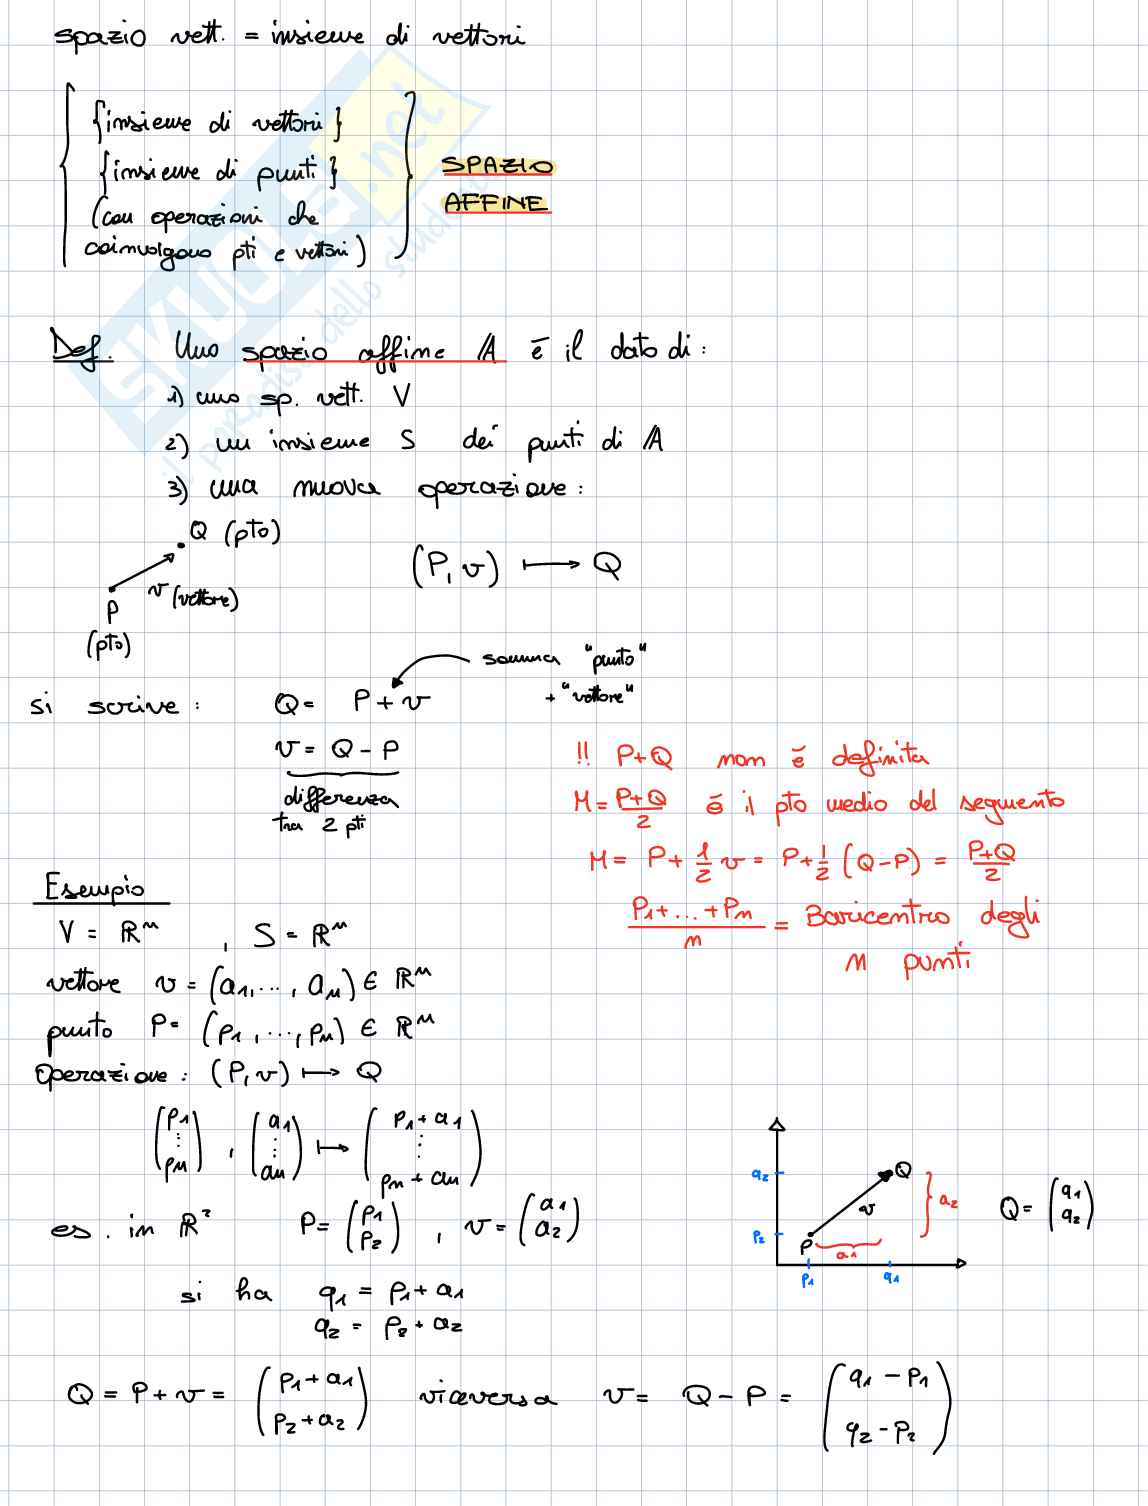 spazio vett. = insieme di vettori
{insieme di vettori}
{insieme di punti}
(con operazioni che
coinvolgono pti e vettori)
SPAZIO
AFFINE
Def. Uno spazio affine 𝔸 è il dato di:
1) uno sp. vett. V
2) un insieme S dei punti di 𝔸
3) una nuova operazione:
Q (pto)
v (vettore)
P
(pto)
(P, v) ⟼ Q
somma "punto"
+ "vettore"
si scrive: Q = P + v
v = Q - P
differenza
tra 2 pti
!! P+Q non è definita
M = P+Q/2 è il pto medio del segmento
M = P + 1/2 v = P + 1/2 (Q-P) = P+Q/2
P1+...+Pn/n = Baricentro degli
n punti
Esempio
V = ℝⁿ , S = ℝⁿ
vettore v = (a1, ..., an) ∈ ℝⁿ
punto P = (p1, ..., pn) ∈ ℝⁿ
Operazione: (P, v) ⟼ Q
(p1 ⋮ pn) , (a1 ⋮ an) ⟼ (p1 + a1 ⋮ pn + an)
es. in ℝ² P = (p1 p2) , v = (a1 a2)
si ha q1 = p1 + a1
q2 = p2 + a2
q2
p2
P
v
Q
a1
a2
p1
q1
Q = (q1 q2)
Q = P + v = (p1 + a1 p2 + a2) viceversa v = Q - P = (q1 - p1 q2 - p2)
SKUOLA.net
il paradiso dello stud